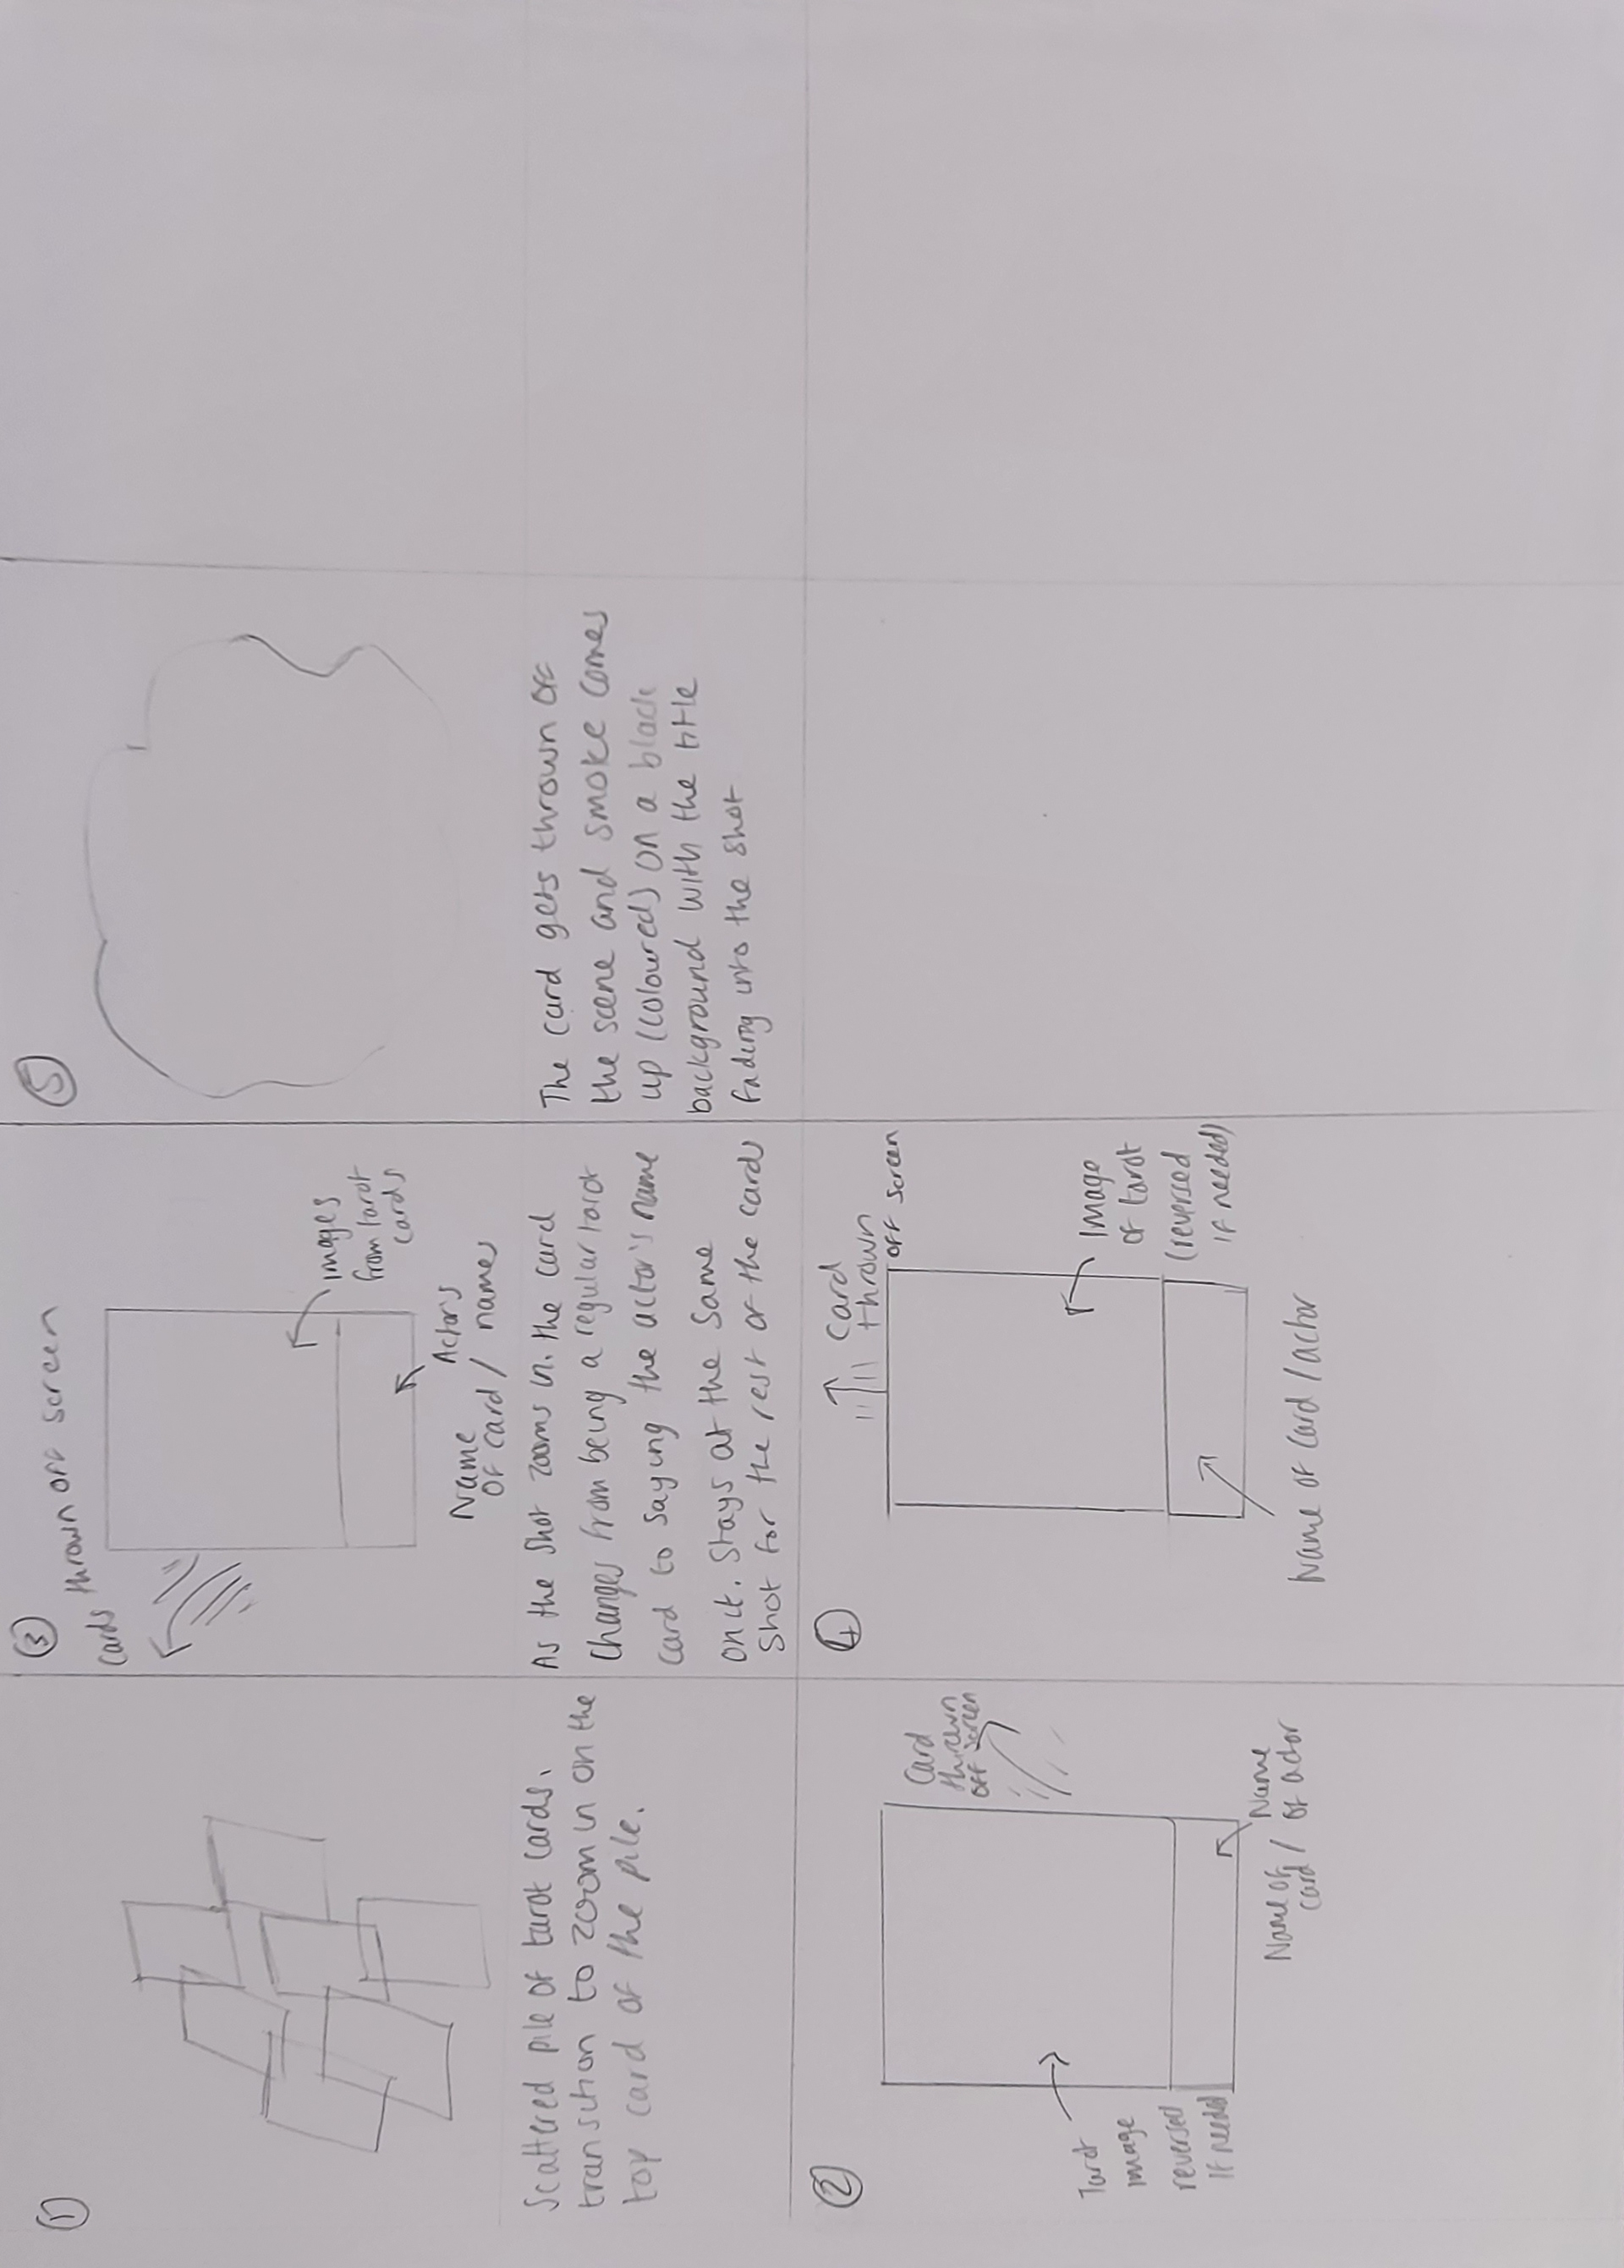 ①
Scattered pile of tarot cards.
transition to zoom in on the
top card of the pile.
②
Card
thrown
off screen
Tarot
image
reversed
if needed
Name of
card /
Name
of actor
③
cards thrown off screen
Images
from tarot
cards
Name
of card /
Actors
names
As the shot zooms in. the card
changes from being a regular tarot
card to saying the actor's name
on it. Stays at the same
shot for the rest of the cards
④
Card
thrown
off screen
Image
of tarot
(reversed
if needed)
Name of card / actor
⑤
The card gets thrown off
the scene and smoke comes
up (coloured) on a black
background with the title
fading into the shot